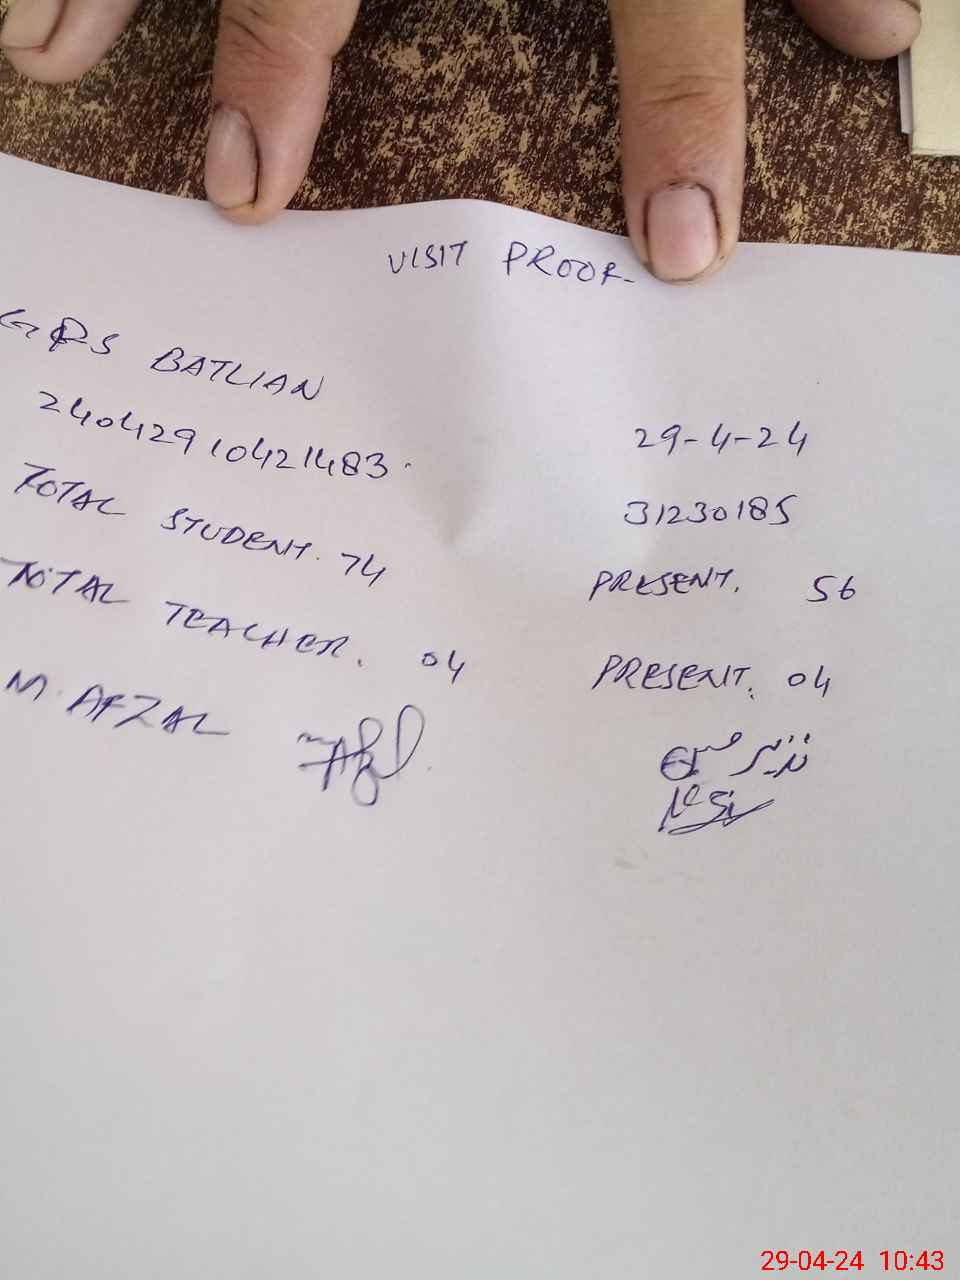 VISIT PROOF-
GPS BATLIAN
29-4-24
240429 10421483.
31230185
TOTAL STUDENT. 74
PRESENT. 56
TOTAL TEACHER. 04
PRESENT. 04
M. AFZAL
29-04-24 10:43